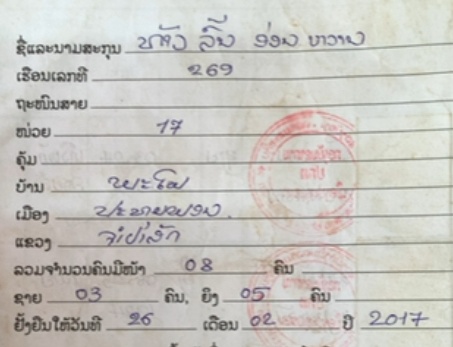 ຊື່ແລະນາມສະກຸນ ທ້າວ ລິນ ອ່ອນ
ເຮືອນເລກທີ 269
ຖະໜົນສາຍ
ໜ່ວຍ 17
ຄຸ້ມ
ບ້ານ ພະໂພ
ເມືອງ ປະທຸມພອນ.
ແຂວງ ຈຳປາສັກ
ລວມຈຳນວນຄົນມີໜ້າ 08 ຄົນ
ຊາຍ 03 ຄົນ, ຍິງ 05 ຄົນ
ຢັ້ງຢືນໃຫ້ວັນທີ 26 ເດືອນ 02 ປີ 2017